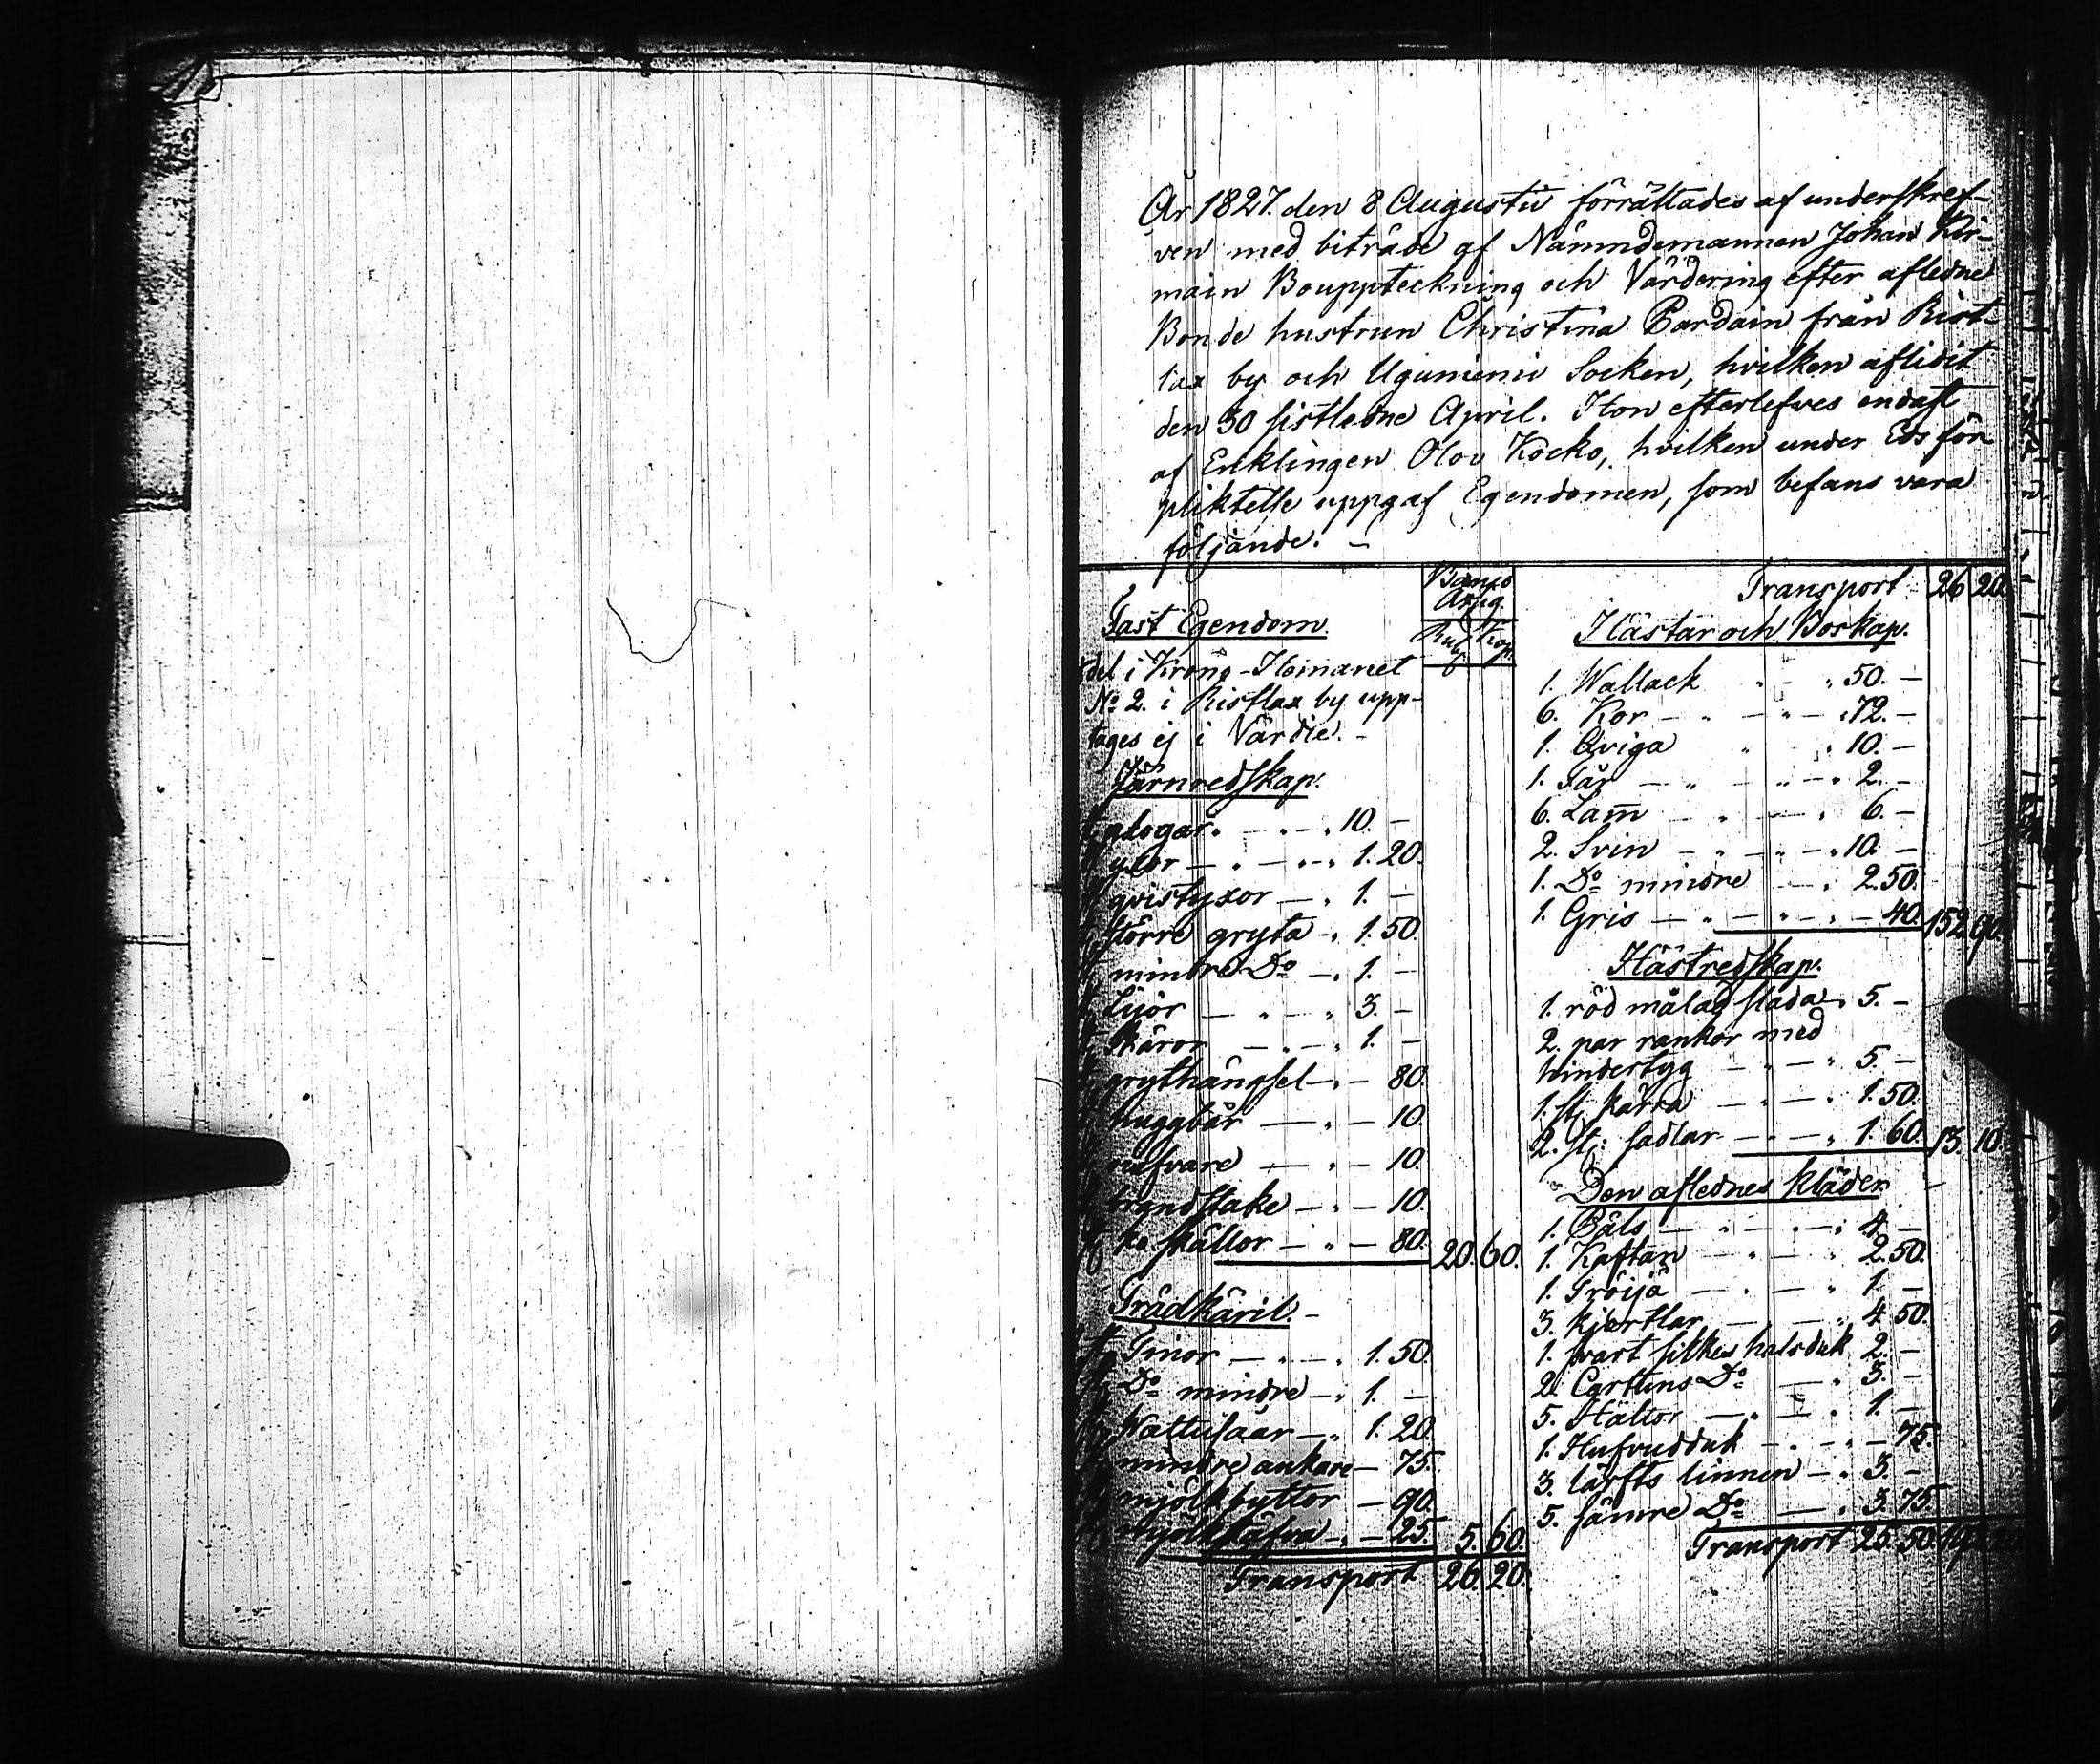 År 1827. den 8 Augusti förrättades af underskref-
ven med biträde af Nämndemannen Johan Kir-
main Bouppteckning och Värdering efter afledne
Bonde hustrun Christina Pardain från Rist-
lax by och Uguniemi Socken, hvilken aflidit
den 30 sistledne April. Hon efterlefves endast
af Enklingen Olov Kocko, hvilken under Eds för-
pliktelse uppgaf Egendomen, som befans vara
följande. –
Banco
Assig.
Rub. Kop.
Fast Egendom.
del i Krono-Hemanet
No 2. i Ristlax by upp-
tages ej i Värdie. –
Järnredskap.
plogar. — " — " 10. –
yxor — " — " — " 1. 20.
qvistyxor — " 1. –
större gryta — " 1. 50.
mindre Do — " 1. –
Lijor — " — " 3. –
Skäror — " — " 1. –
grythängsel — " — 80.
huggbår — " — 10.
nafvare — " — 10.
brandstake — " — 10.
ko skällor — " — 80. 20. 60.
Trädkäril. –
Tinor — " — " 1. 50.
Do mindre — " 1. –
Wattusåar — " 1. 20.
mindre ankare — 75.
mjölkbyttor — 90.
mjölkstäfva — " — 25. 5. 60.
Transport 26. 20.
Transport 26 20.
Hästar och Boskap.
1. Wallack " — " 50. –
6. Kor — " — " — " 72. –
1. Qviga " — " 10. –
1. Får — " — " — " 2. –
6. Lam̄ — " — " 6. –
2. Svin — " — " — " 10. –
1. Do mindre — " 2. 50.
1. Gris — " — " — " — 40. 152. 90.
Hästredskap.
1. röd målad släda " 5. –
2. par rankor med
hindertyg — " — " 5. –
1. st. kärra — " — " 1. 50.
2. st: sadlar — " — " 1. 60. 13. 10.
Den aflednes kläder
1. Päls — " — " — " 4 –
1. Kaftan — " — " 2. 50.
1. Tröija — " — " 1. –
3. kjortlar — — " 4 50.
1. svart silkes halsduk 2. –
2. Cartuns Do — " 3. –
5. Hältor — " — " 1. –
1. Hufvudduk — " — " — 75.
3. lärfts linnen — " 3. –
5. sämre Do — " 3. 75
Transport 25. 50.